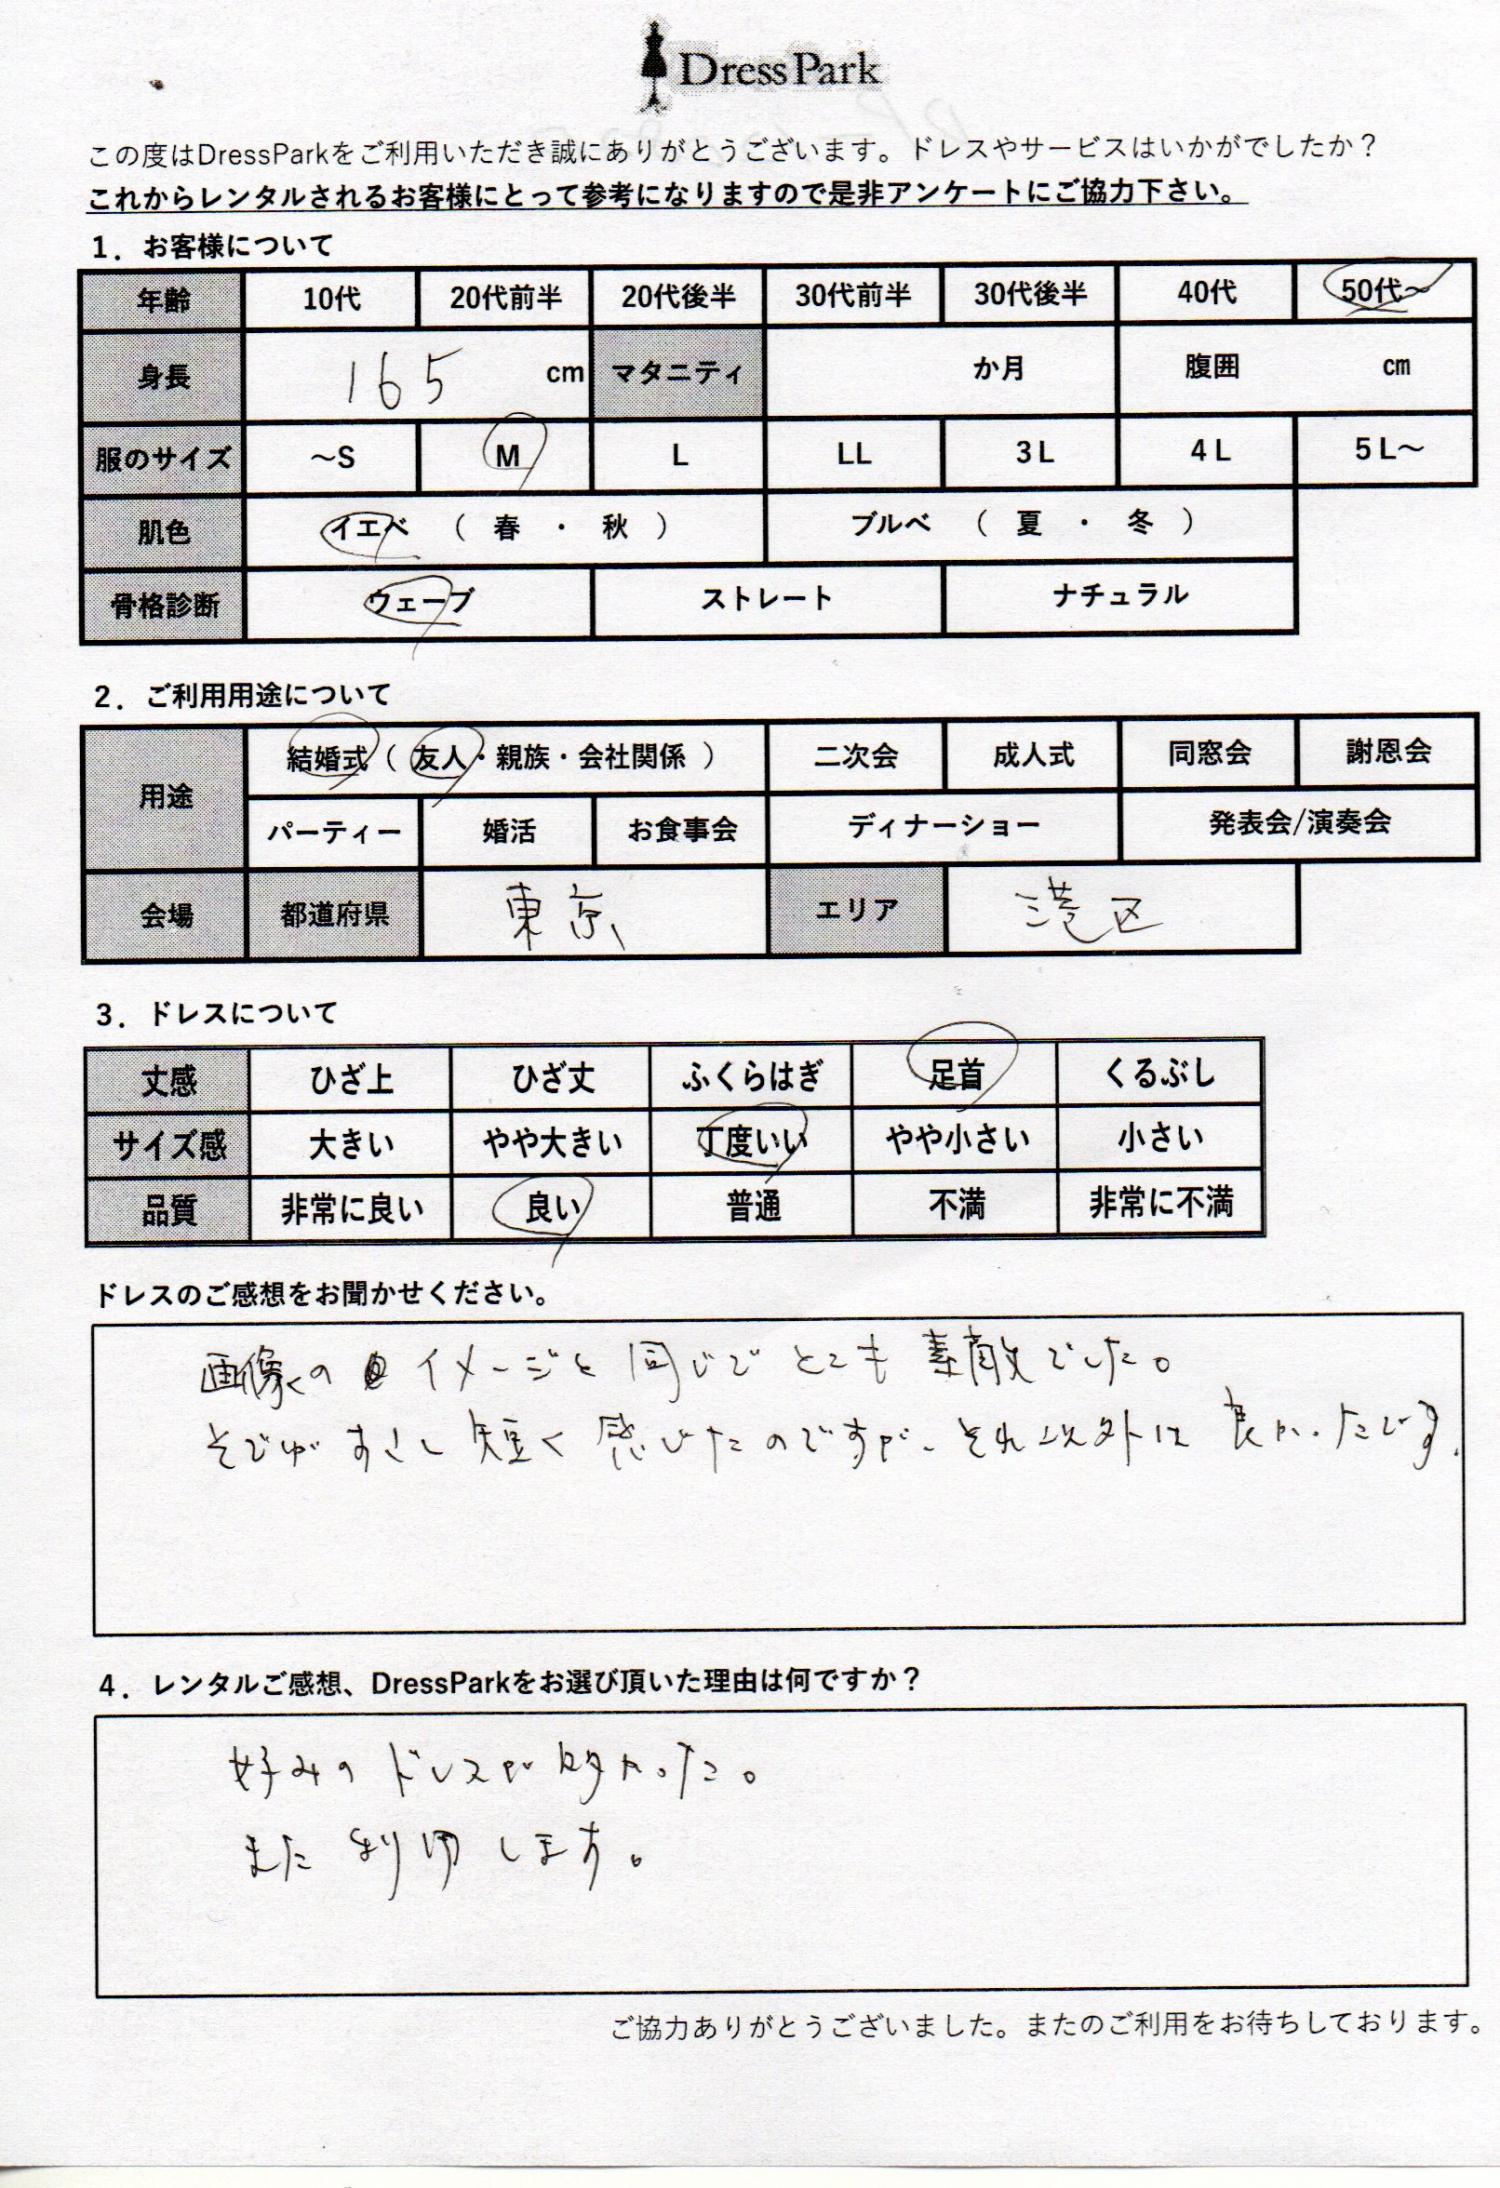 DressPark
この度はDressParkをご利用いただき誠にありがとうございます。ドレスやサービスはいかがでしたか？
これからレンタルされるお客様にとって参考になりますので是非アンケートにご協力下さい。
1．お客様について
年齢 10代 20代前半 20代後半 30代前半 30代後半 40代 50代～
身長 165 cm マタニティ か月 腹囲 cm
服のサイズ ～S M L LL 3L 4L 5L～
肌色 イエベ （ 春 ・ 秋 ） ブルベ （ 夏 ・ 冬 ）
骨格診断 ウェーブ ストレート ナチュラル
2．ご利用用途について
用途 結婚式（ 友人・親族・会社関係 ） 二次会 成人式 同窓会 謝恩会
パーティー 婚活 お食事会 ディナーショー 発表会/演奏会
会場 都道府県 東京 エリア 港区
3．ドレスについて
丈感 ひざ上 ひざ丈 ふくらはぎ 足首 くるぶし
サイズ感 大きい やや大きい 丁度いい やや小さい 小さい
品質 非常に良い 良い 普通 不満 非常に不満
ドレスのご感想をお聞かせください。
画像の イメージと同じでとても素敵でした。
そでがすこし短く感じたのですが、それ以外は良かったです。
4．レンタルご感想、DressParkをお選び頂いた理由は何ですか？
好みのドレスが多かった。
また利用します。
ご協力ありがとうございました。またのご利用をお待ちしております。